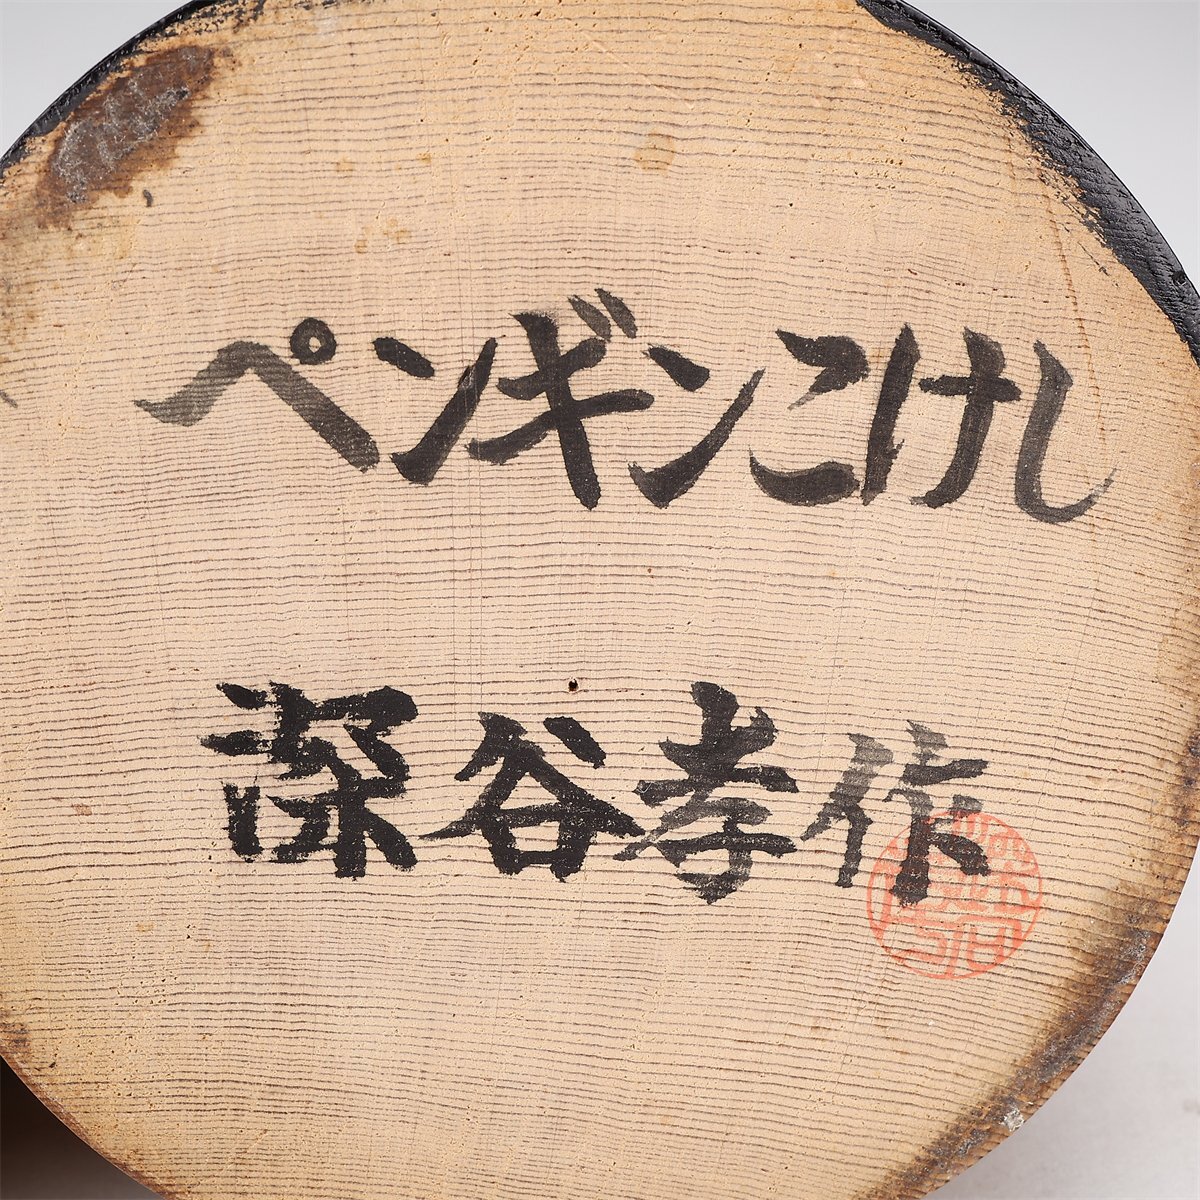 ペンギンこけし
深谷孝作